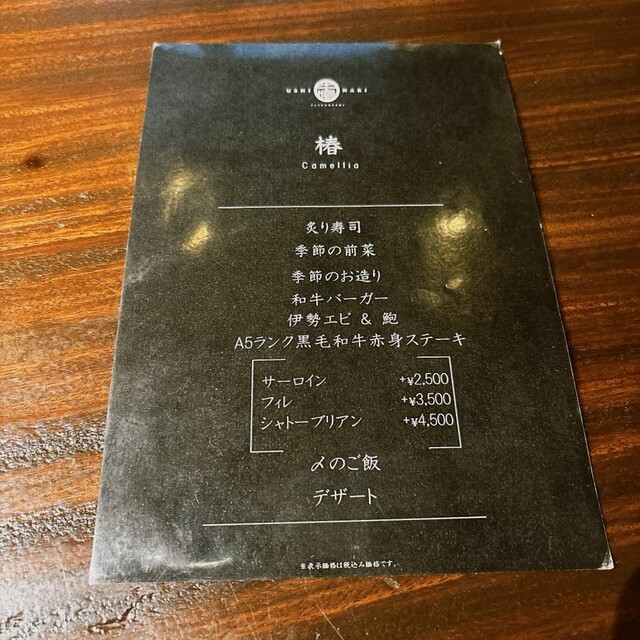 USHI NARI
椿
Camellia
炙り寿司
季節の前菜
季節のお造り
和牛バーガー
伊勢エビ & 鮑
A5ランク黒毛和牛赤身ステーキ
サーロイン +¥2,500
フィレ +¥3,500
シャトーブリアン +¥4,500
〆のご飯
デザート
※表示価格は税込み価格です。